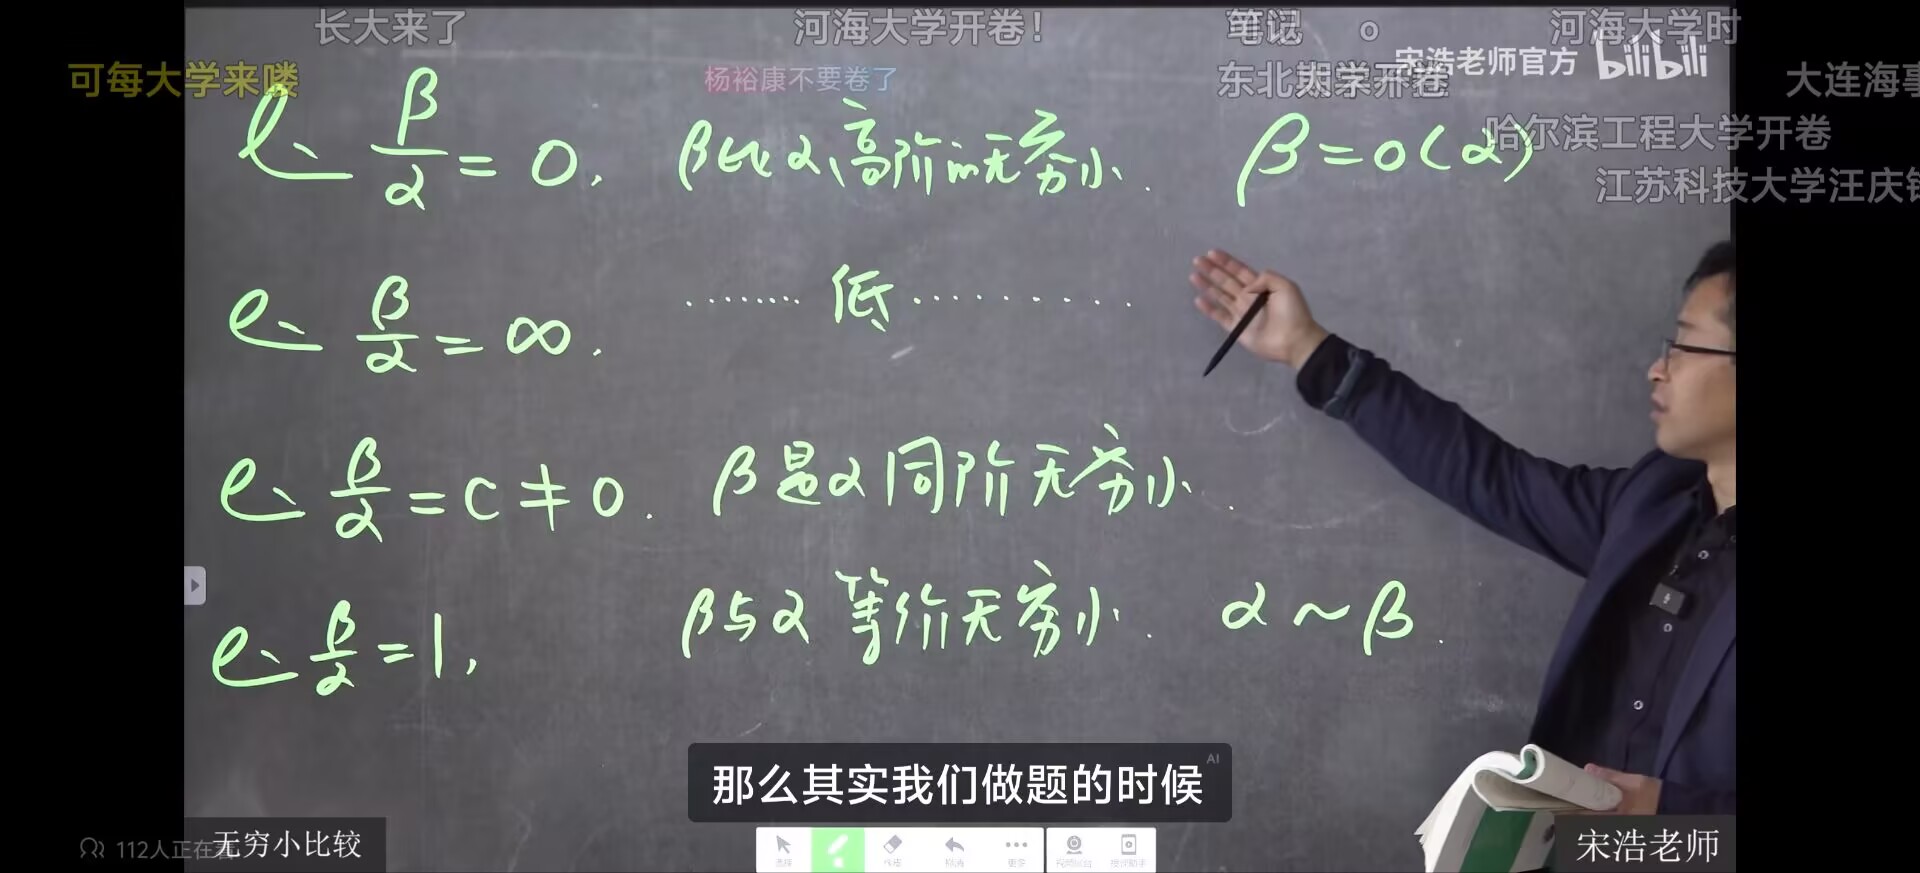 长大来了 河海大学开卷！ 笔记 o 河海大学时
可每大学来喽 杨裕康不要卷了 东北大学开卷 宋浩老师官方 bilibili 大连海事
哈尔滨工程大学开卷
江苏科技大学汪庆
β/α = 0, β比α高阶的无穷小. β=o(α)
β/α = ∞. ······· 低 ··········
β/α = C ≠ 0. β是α同阶无穷小.
β/α = 1, β与α等价无穷小. α~β.
那么其实我们做题的时候
AI
112人正在看
无穷小比较
选择 更多
宋浩老师